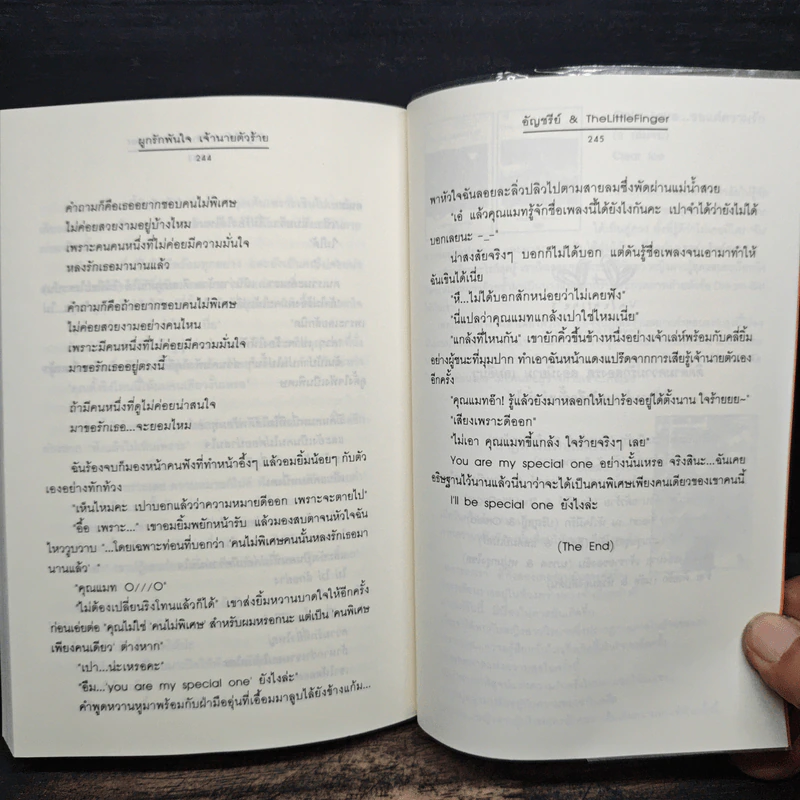 ผูกรักพันใจ เจ้านายตัวร้าย
244
คำถามก็คือเธออยากชอบคนไม่พิเศษ
ไม่ค่อยสวยงามอยู่บ้างไหม
เพราะคนคนหนึ่งที่ไม่ค่อยมีความมั่นใจ
หลงรักเธอมานานแล้ว
คำถามก็คือถ้าอยากชอบคนไม่พิเศษ
ไม่ค่อยสวยงามอย่างคนไหน
เพราะมีคนหนึ่งที่ไม่ค่อยมีความมั่นใจ
มาขอรักเธออยู่ตรงนี้
ถ้ามีคนหนึ่งที่ดูไม่ค่อยน่าสนใจ
มาขอรักเธอ...จะยอมไหม
ฉันร้องจบก็มองหน้าคนฟังที่ทำหน้าอึ้งๆ แล้วอมยิ้มน้อยๆ กับตัว
เองอย่างทักท้วง
"เห็นไหมคะ เปาบอกแล้วว่าความหมายดีออก เพราะจะตายไป"
"อื้อ เพราะ..." เขาอมยิ้มพยักหน้ารับ แล้วมองสบตาจนหัวใจฉัน
ไหววูบวาบ "...โดยเฉพาะท่อนที่บอกว่า 'คนไม่พิเศษคนนั้นหลงรักเธอมา
นานแล้ว' "
"คุณแมท O///O"
"ไม่ต้องเปลี่ยนริงโทนแล้วก็ได้" เขาส่งยิ้มหวานบาดใจให้อีกครั้ง
ก่อนเอ่ยต่อ "คุณไม่ใช่ 'คนไม่พิเศษ' สำหรับผมหรอกนะ แต่เป็น 'คนพิเศษ
เพียงคนเดียว' ต่างหาก"
"เปา...น่ะเหรอคะ"
"อืม...'you are my special one' ยังไงล่ะ"
คำพูดหวานหูมาพร้อมกับฝ่ามืออุ่นที่เอื้อมมาลูบไล้ยังข้างแก้ม...
อัญชรีย์ & TheLittleFinger
245
พาหัวใจฉันลอยละลิ่วปลิวไปตามสายลมซึ่งพัดผ่านแม่น้ำสวย
"เอ๋ แล้วคุณแมทรู้จักชื่อเพลงนี้ได้ยังไงกันคะ เปาจำได้ว่ายังไม่ได้
บอกเลยนะ -_-"
น่าสงสัยจริงๆ บอกก็ไม่ได้บอก แต่ดันรู้ชื่อเพลงจนเอามาทำให้
ฉันเขินได้เนี่ย
"หึ...ไม่ได้บอกสักหน่อยว่าไม่เคยฟัง"
"นี่แปลว่าคุณแมทแกล้งเปาใช่ไหมเนี่ย"
"แกล้งที่ไหนกัน" เขายักคิ้วขึ้นข้างหนึ่งอย่างเจ้าเล่ห์พร้อมกับคลี่ยิ้ม
อย่างผู้ชนะที่มุมปาก ทำเอาฉันหน้าแดงแปร๊ดจากการเสียรู้เจ้านายตัวเอง
อีกครั้ง
"คุณแมทอ๊า! รู้แล้วยังมาหลอกให้เปาร้องอยู่ได้ตั้งนาน ใจร้ายยย~"
"เสียงเพราะดีออก"
"ไม่เอา คุณแมทขี้แกล้ง ใจร้ายจริงๆ เลย"
You are my special one อย่างนั้นเหรอ จริงสินะ...ฉันเคย
อธิษฐานไว้นานแล้วนี่นาว่าจะได้เป็นคนพิเศษเพียงคนเดียวของเขาคนนี้
I'll be special one ยังไงล่ะ
(The End)